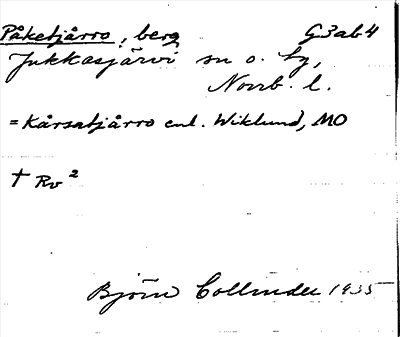 Påketjårro, berg G3ab4
Jukkasjärvi sn o. tg,
Norrb. l.
= Kårsatjårro enl. Wiklund, MO
† Rv²
Björn Collinder 1935